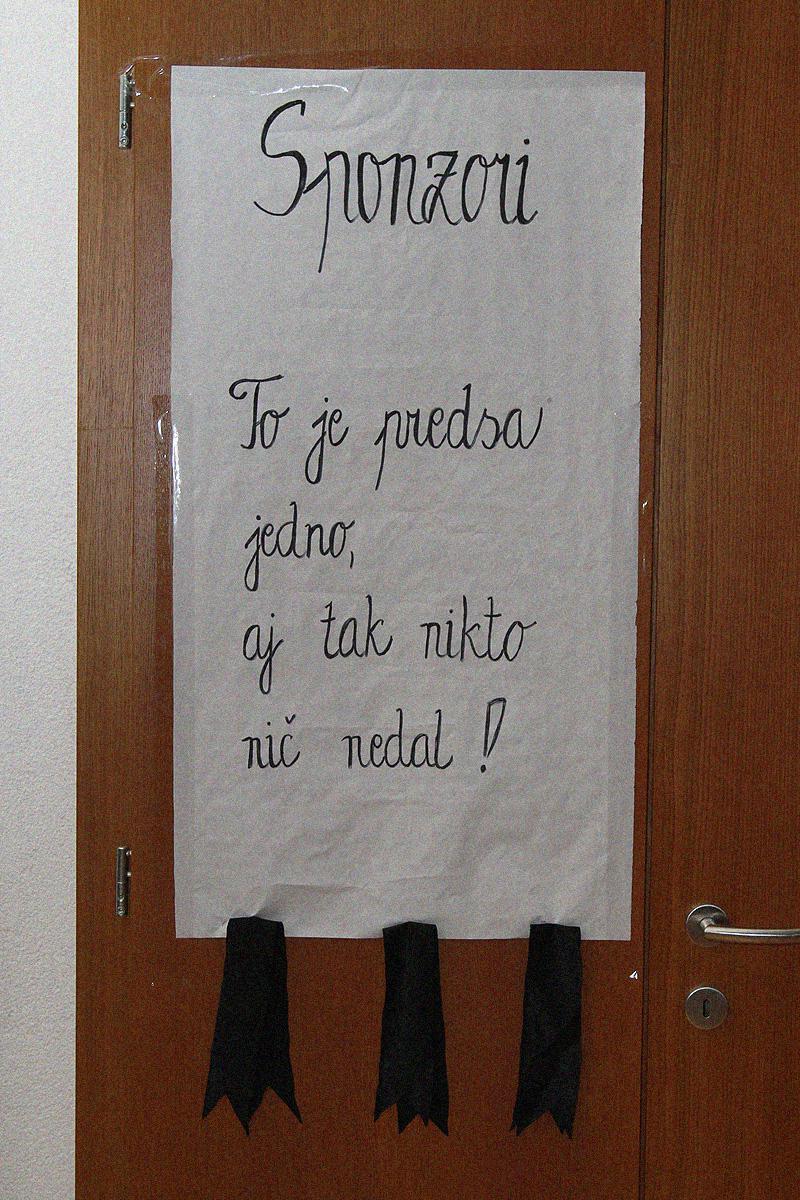 Sponzori
To je predsa
jedno,
aj tak nikto
nič nedal!